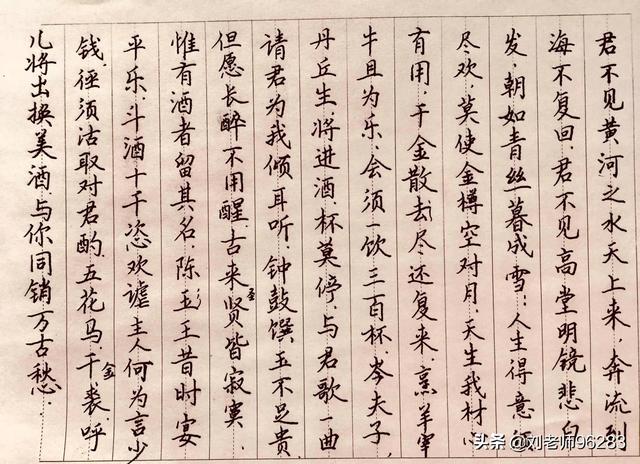 君不见黄河之水天上来，奔流到
海不复回.君不见高堂明镜悲白
发.朝如青丝暮成雪；人生得意须
尽欢.莫使金樽空对月.天生我材必
有用.千金散去尽还复来.烹羊宰
牛且为乐.会须一饮三百杯.岑夫子,
丹丘生.将进酒.杯莫停.与君歌一曲
请君为我倾耳听.钟鼓馔玉不足贵.
但愿长醉不用醒.古来圣贤皆寂寞.
惟有酒者留其名.陈玉王昔时宴
平乐.斗酒十千恣欢谑.主人何为言少
钱.径须沽取对君酌.五花马.千金裘呼
儿将出换美酒.与你同销万古愁.
头条 @刘老师96283